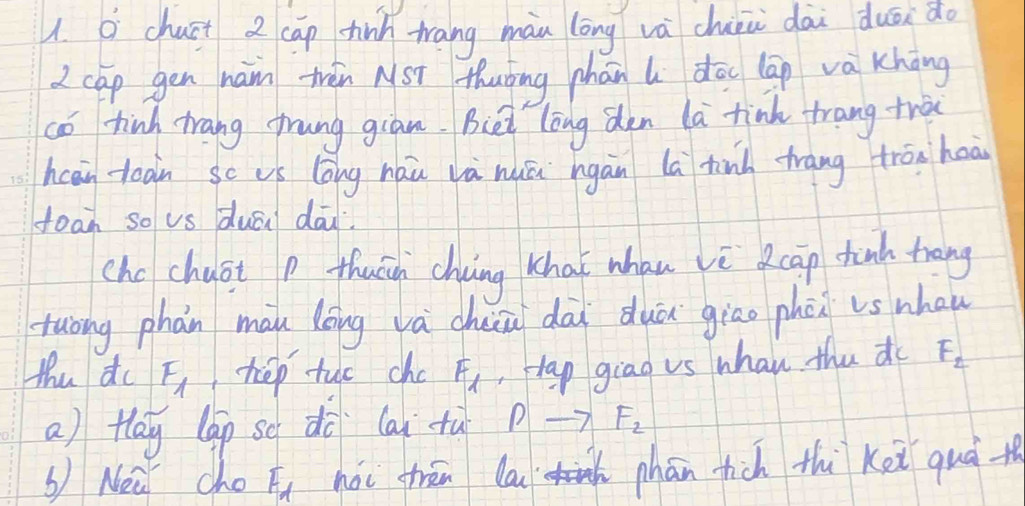 1. Ở chuột 2 cặp tính trạng màu lông và chiều dài đuôi do
2 cặp gen nằm trên NST thường phân li độc lập và không
có tính trạng trung gian. Biết lông đen là tính trạng trội
hoàn toàn so vs lông nâu và nuôi ngắn là tính trạng trội hoàn
toàn so vs đuôi dài.
Cho chuột P thuần chủng khác nhau về 2 cặp tính trạng
tương phản màu lông và chiều dài đuôi giao phối vs nhau
thu đc F1, tiếp tục cho F1, tạp giao vs nhau thu đc F2
a) Hãy lập sơ đồ lai từ P → F2
b) Nếu cho F1 nói trên lai phân tích thì kết quả th